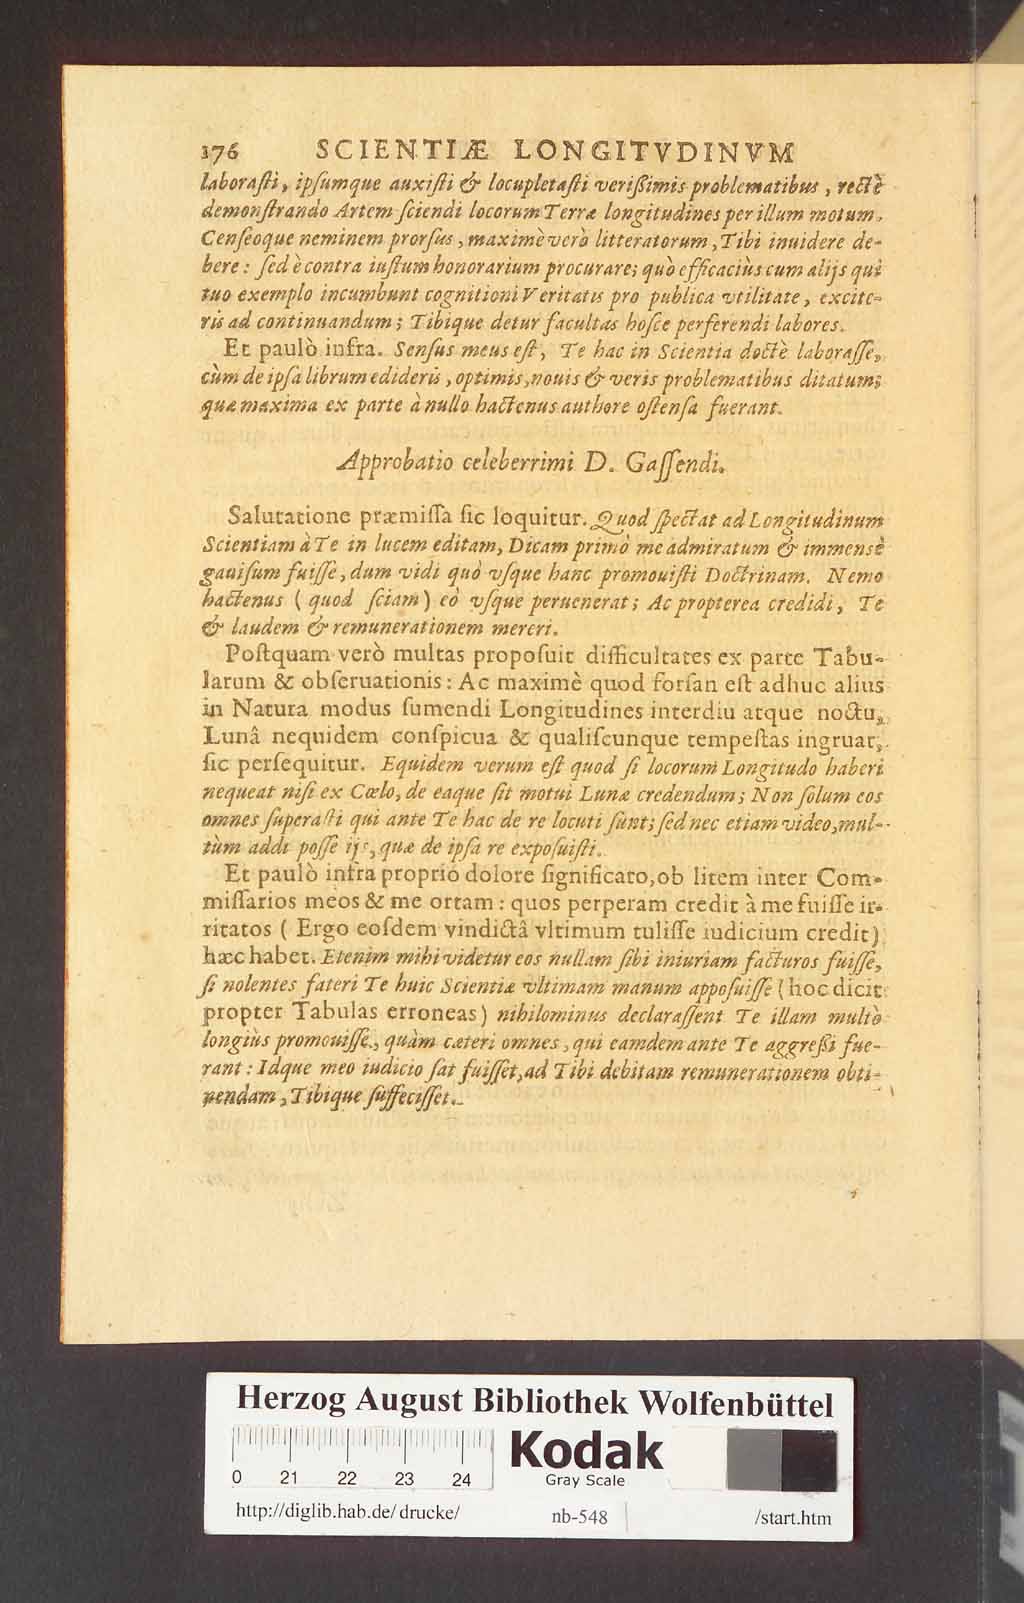 176 SCIENTIÆ LONGITVDINVM
laboraſti, ipſumque auxiſti & locupletaſti verißimis problematibus, rectè
demonſtrando Artem ſciendi locorum Terræ longitudines per illum motum.
Cenſeoque neminem prorſus, maximè verò litteratorum, Tibi inuidere de-
bere: ſed è contra iuſtum honorarium procurare; quò efficaciùs cum alijs qui
tuo exemplo incumbunt cognitioni Veritatis pro publica vtilitate, excite-
ris ad continuandum; Tibique detur facultas hoſce perferendi labores.
Et paulò infra. Senſus meus eſt, Te hac in Scientia doctè laboraſſe,
cùm de ipſa librum edideris, optimis, nouis & veris problematibus ditatum;
quæ maxima ex parte à nullo hactenus authore oſtenſa fuerant.
Approbatio celeberrimi D. Gaſſendi.
Salutatione præmiſſa ſic loquitur. Quod ſpectat ad Longitudinum
Scientiam à Te in lucem editam, Dicam primò me admiratum & immensè
gauiſum fuiſſe, dum vidi quò vſque hanc promouiſti Doctrinam. Nemo
hactenus ( quod ſciam ) eò vſque peruenerat; Ac propterea credidi, Te
& laudem & remunerationem mereri.
Poſtquam verò multas propoſuit difficultates ex parte Tabu-
larum & obſeruationis: Ac maximè quod forſan eſt adhuc alius
in Natura modus ſumendi Longitudines interdiu atque noctu,
Lunâ nequidem conſpicua & qualiſcunque tempeſtas ingruat,
ſic perſequitur. Equidem verum eſt quod ſi locorum Longitudo haberi
nequeat niſi ex Cœlo, de eaque ſit motui Lunæ credendum; Non ſolum eos
omnes ſuperaſti qui ante Te hac de re locuti ſunt; ſed nec etiam video, mul-
tùm addi poſſe ijs, quæ de ipſa re expoſuiſti.
Et paulò infra proprió dolore ſignificato, ob litem inter Com-
miſſarios meos & me ortam: quos perperam credit à me fuiſſe ir-
ritatos ( Ergo eoſdem vindictâ vltimum tuliſſe iudicium credit)
hæc habet. Etenim mihi videtur eos nullam ſibi iniuriam facturos fuiſſe,
ſi nolentes fateri Te huic Scientiæ vltimam manum appoſuiſſe (hoc dicit
propter Tabulas erroneas) nihilominus declaraſſent Te illam multò
longiùs promouiſſe, quàm cæteri omnes, qui eamdem ante Te aggreßi fue-
rant: Idque meo iudicio ſat fuiſſet, ad Tibi debitam remunerationem obti-
nendam, Tibique ſuffeciſſet.
Herzog August Bibliothek Wolfenbüttel
0 21 22 23 24
Kodak
Gray Scale
http://diglib.hab.de/drucke/ nb-548 /start.htm